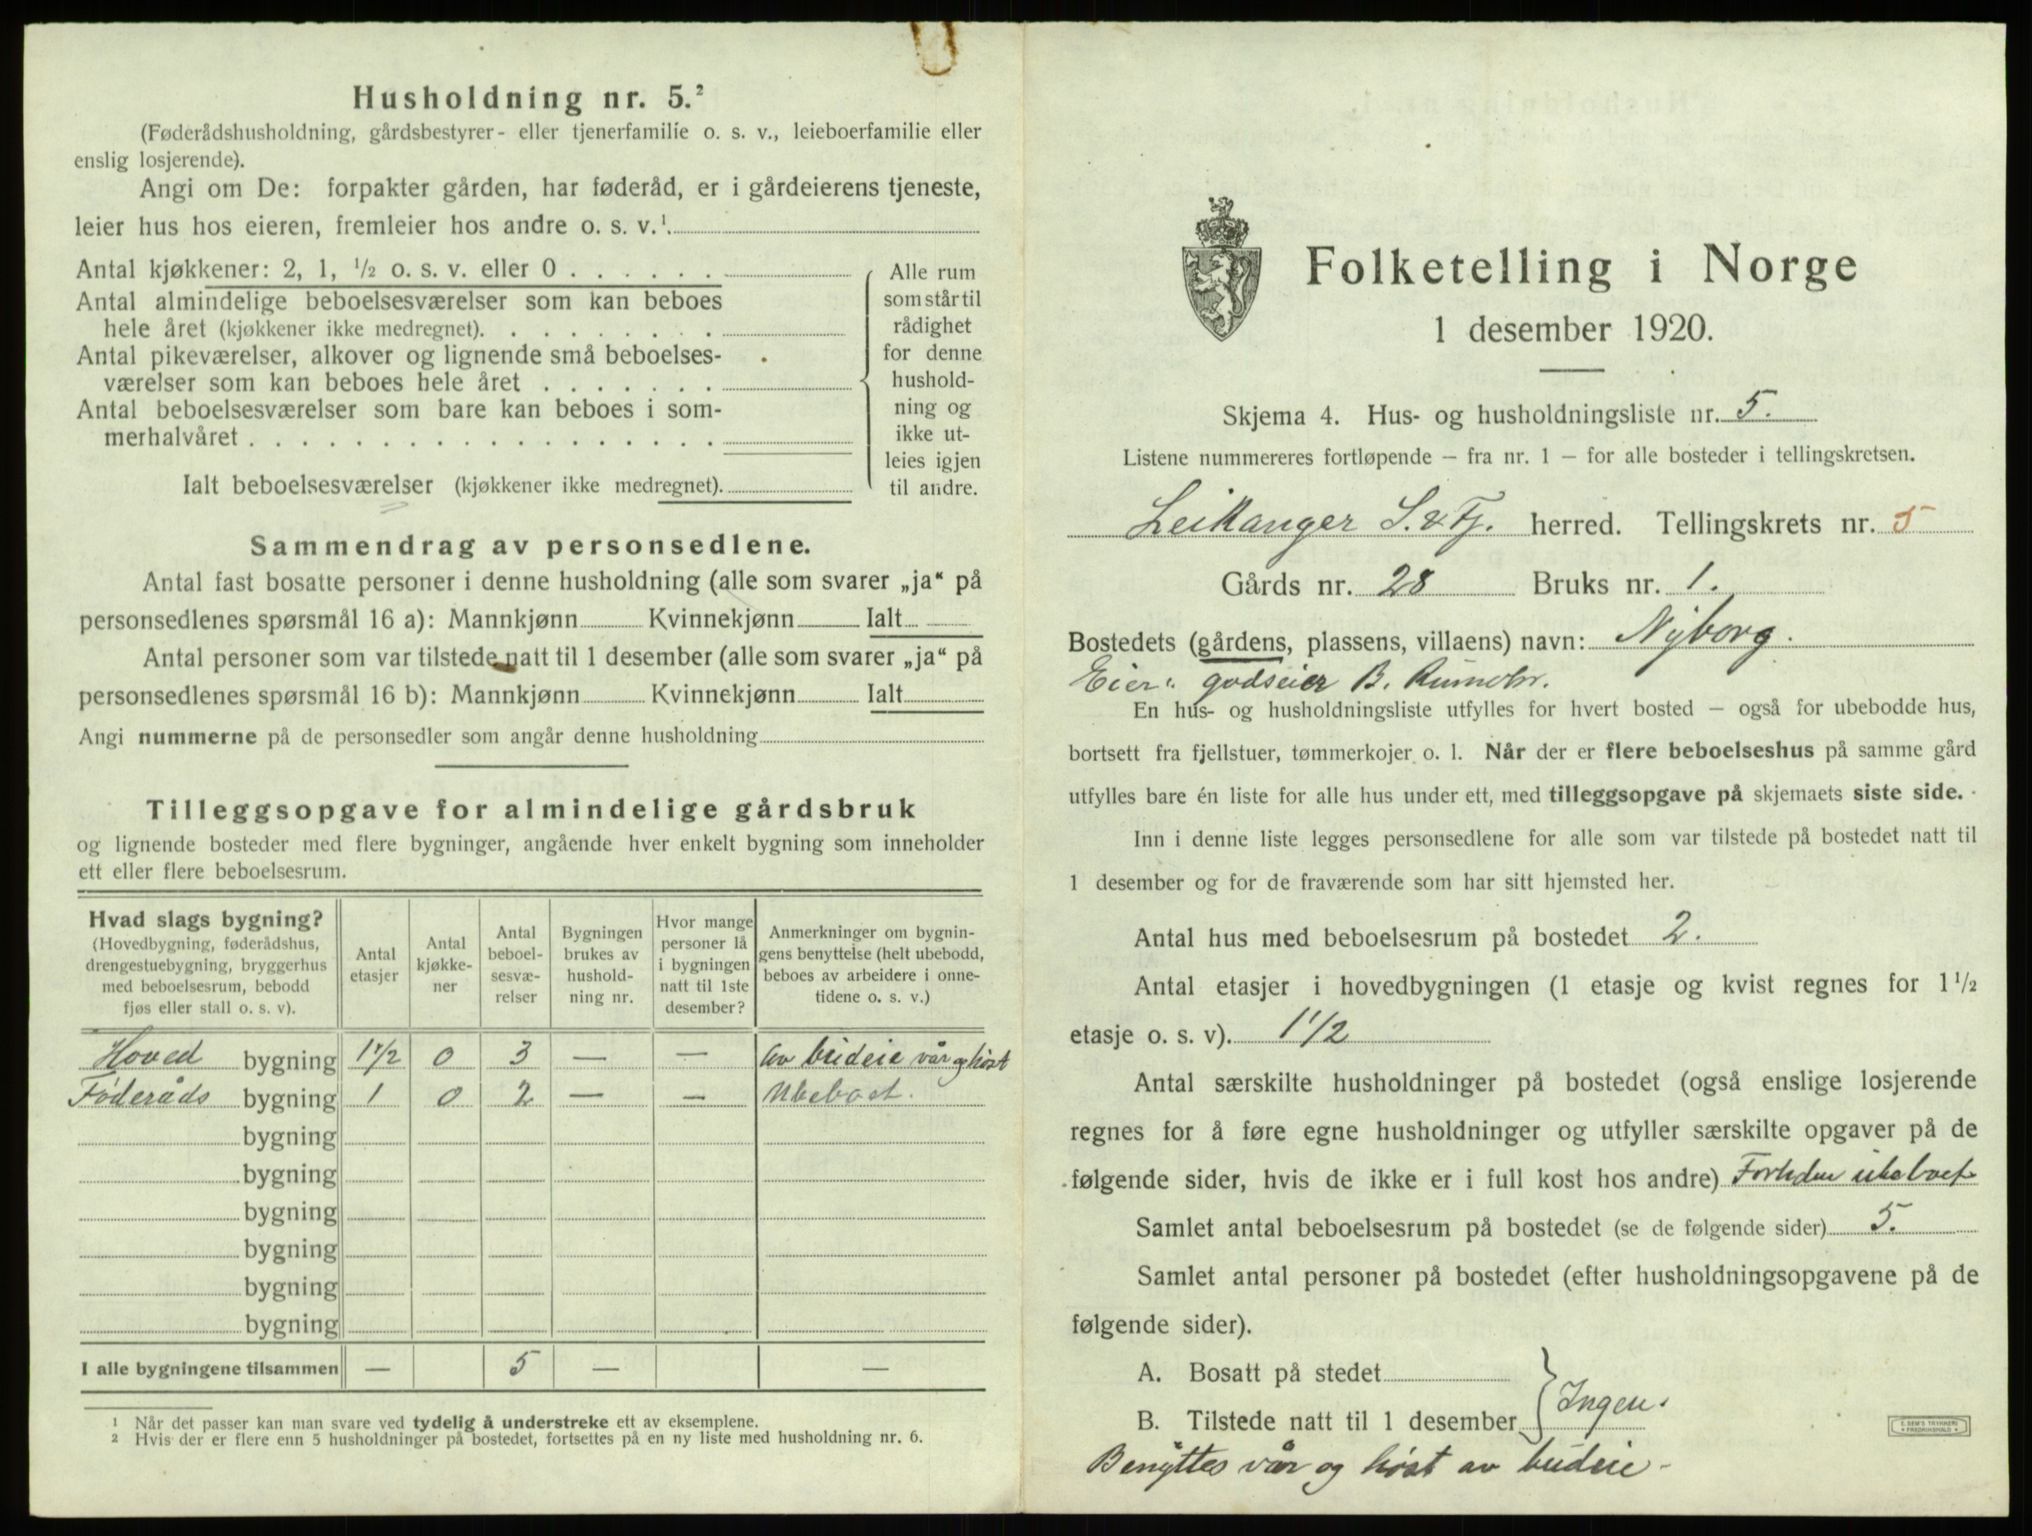 Husholdning nr. 5.²
(Føderådshusholdning, gårdsbestyrer- eller tjenerfamilie o. s. v., leieboerfamilie eller
enslig losjerende).
Angi om De: forpakter gården, har føderåd, er i gårdeierens tjeneste,
leier hus hos eieren, fremleier hos andre o. s. v.¹.
Antal kjøkkener: 2, 1, ½ o. s. v. eller 0 . . . . . .
Antal almindelige beboelsesværelser som kan beboes
hele året (kjøkkener ikke medregnet). . . . . . . . .
Antal pikeværelser, alkover og lignende små beboelses-
værelser som kan beboes hele året . . . . . . .
Antal beboelsesværelser som bare kan beboes i som-
merhalvåret . . . . . . . . . . . . . . . . . .
Ialt beboelsesværelser (kjøkkener ikke medregnet).
Alle rum
som står til
rådighet
for denne
hushold-
ning og
ikke ut-
leies igjen
til andre.
Sammendrag av personsedlene.
Antal fast bosatte personer i denne husholdning (alle som svarer „ja“ på
personsedlenes spørsmål 16 a): Mannkjønn Kvinnekjønn Ialt
Antal personer som var tilstede natt til 1 desember (alle som svarer „ja“ på
personsedlenes spørsmål 16 b): Mannkjønn Kvinnekjønn Ialt
Angi nummerne på de personsedler som angår denne husholdning
Tilleggsopgave for almindelige gårdsbruk
og lignende bosteder med flere bygninger, angående hver enkelt bygning som inneholder
ett eller flere beboelsesrum.
Hvad slags bygning?
(Hovedbygning, føderådshus,
drengestuebygning, bryggerhus
med beboelsesrum, bebodd
fjøs eller stall o. s. v).
Antal
etasjer
Antal
kjøkke-
ner
Antal
beboel-
sesvæ-
relser
Bygningen
brukes av
hushold-
ning nr.
Hvor mange
personer lå
i bygningen
natt til 1ste
desember?
Anmerkninger om bygnin-
gens benyttelse (helt ubebodd,
beboes av arbeidere i onne-
tidene o. s. v.)
Hoved bygning 1½ 0 3 — — Av budeie vår og høst
Føderåds bygning 1 0 2 — — Ubeboet.
bygning
bygning
bygning
bygning
bygning
bygning
I alle bygningene tilsammen — 5 — —
¹ Når det passer kan man svare ved tydelig å understreke ett av eksemplene.
² Hvis der er flere enn 5 husholdninger på bostedet, fortsettes på en ny liste med husholdning nr. 6.
Folketelling i Norge
1 desember 1920.
Skjema 4. Hus- og husholdningsliste nr. 5.
Listene nummereres fortløpende – fra nr. 1 – for alle bosteder i tellingskretsen.
Leikanger S. & Fj. herred. Tellingskrets nr. 5
Gårds nr. 28 Bruks nr. 1.
Bostedets (gårdens, plassens, villaens) navn: Nyborg.
Eier: godseier B. Rumohr.
En hus- og husholdningsliste utfylles for hvert bosted – også for ubebodde hus,
bortsett fra fjellstuer, tømmerkojer o. l. Når der er flere beboelseshus på samme gård
utfylles bare én liste for alle hus under ett, med tilleggsopgave på skjemaets siste side.
Inn i denne liste legges personsedlene for alle som var tilstede på bostedet natt til
1 desember og for de fraværende som har sitt hjemsted her.
Antal hus med beboelsesrum på bostedet 2.
Antal etasjer i hovedbygningen (1 etasje og kvist regnes for 1½
etasje o. s. v). 1½
Antal særskilte husholdninger på bostedet (også enslige losjerende
regnes for å føre egne husholdninger og utfyller særskilte opgaver på de
følgende sider, hvis de ikke er i full kost hos andre) ubeboet
Samlet antal beboelsesrum på bostedet (se de følgende sider) 5.
Samlet antal personer på bostedet (efter husholdningsopgavene på de
følgende sider).
A. Bosatt på stedet
B. Tilstede natt til 1 desember
Ingen.
Benyttes vår og høst av budeie.
E. SEM'S TRYKKERI
FREDRIKSHALD